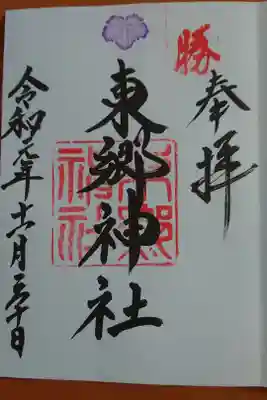 勝
奉拝
東郷神社
東郷神社
令和元年十一月三十日